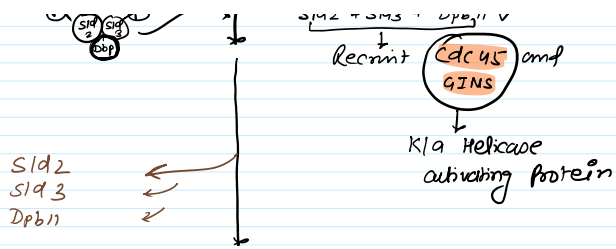 Sld Sld
2 3
Dbp
Sld2 + Sld3 + Dpb11
Recruit Cdc45 and
GINS
K/a Helicase
activating Protein
Sld2
Sld3
Dpb11